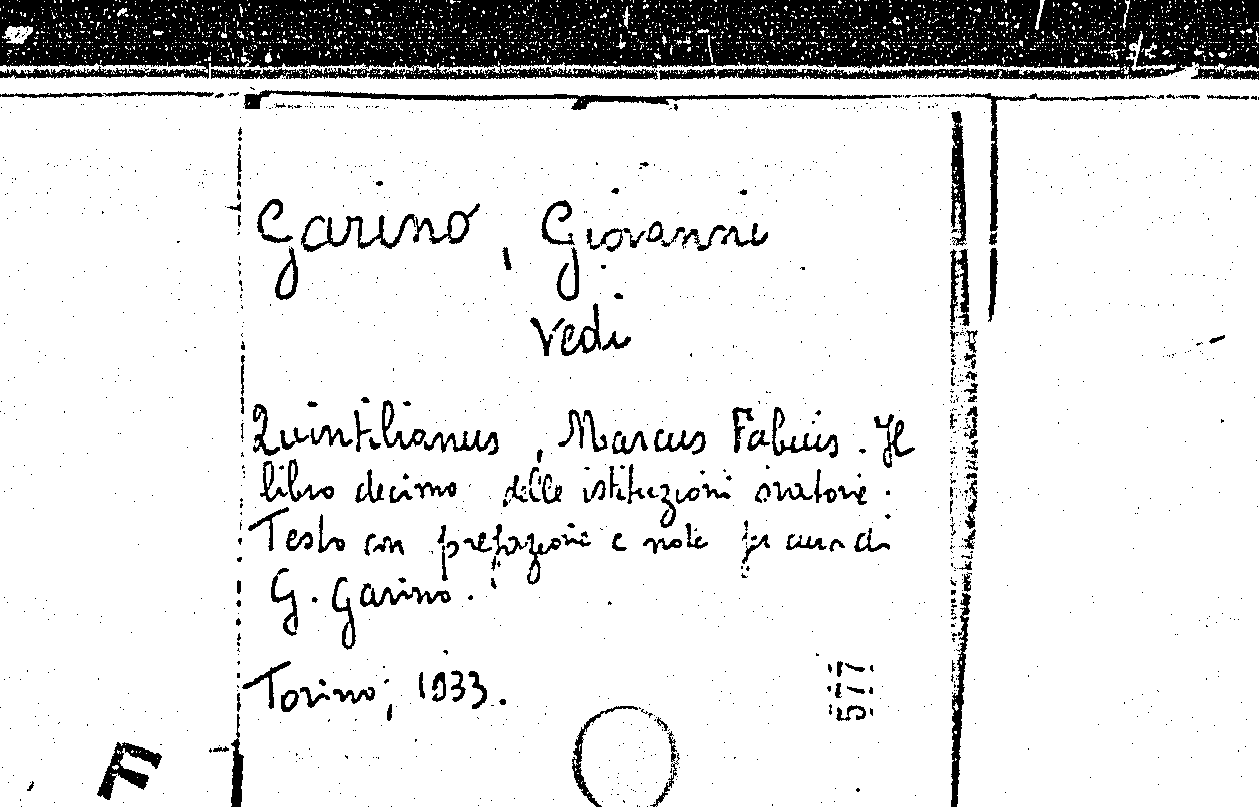 Garino, Giovanni
Vedi
Quintilianus, Marcus Fabius. Il
libro decimo delle istituzioni oratorie.
Testo con prefazione e note per cura di
G. Garino.
Torino, 1933.
577
F